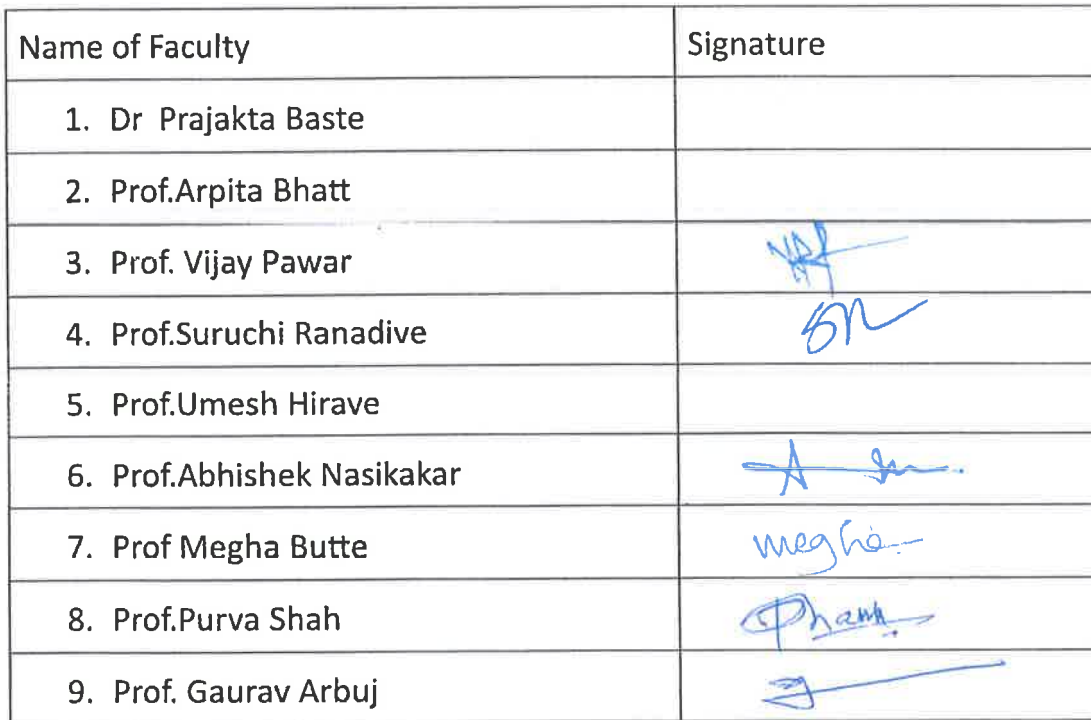 Name of Faculty Signature
1. Dr Prajakta Baste
2. Prof.Arpita Bhatt
3. Prof. Vijay Pawar
4. Prof.Suruchi Ranadive
5. Prof.Umesh Hirave
6. Prof.Abhishek Nasikakar
7. Prof Megha Butte megha
8. Prof.Purva Shah
9. Prof. Gaurav Arbuj